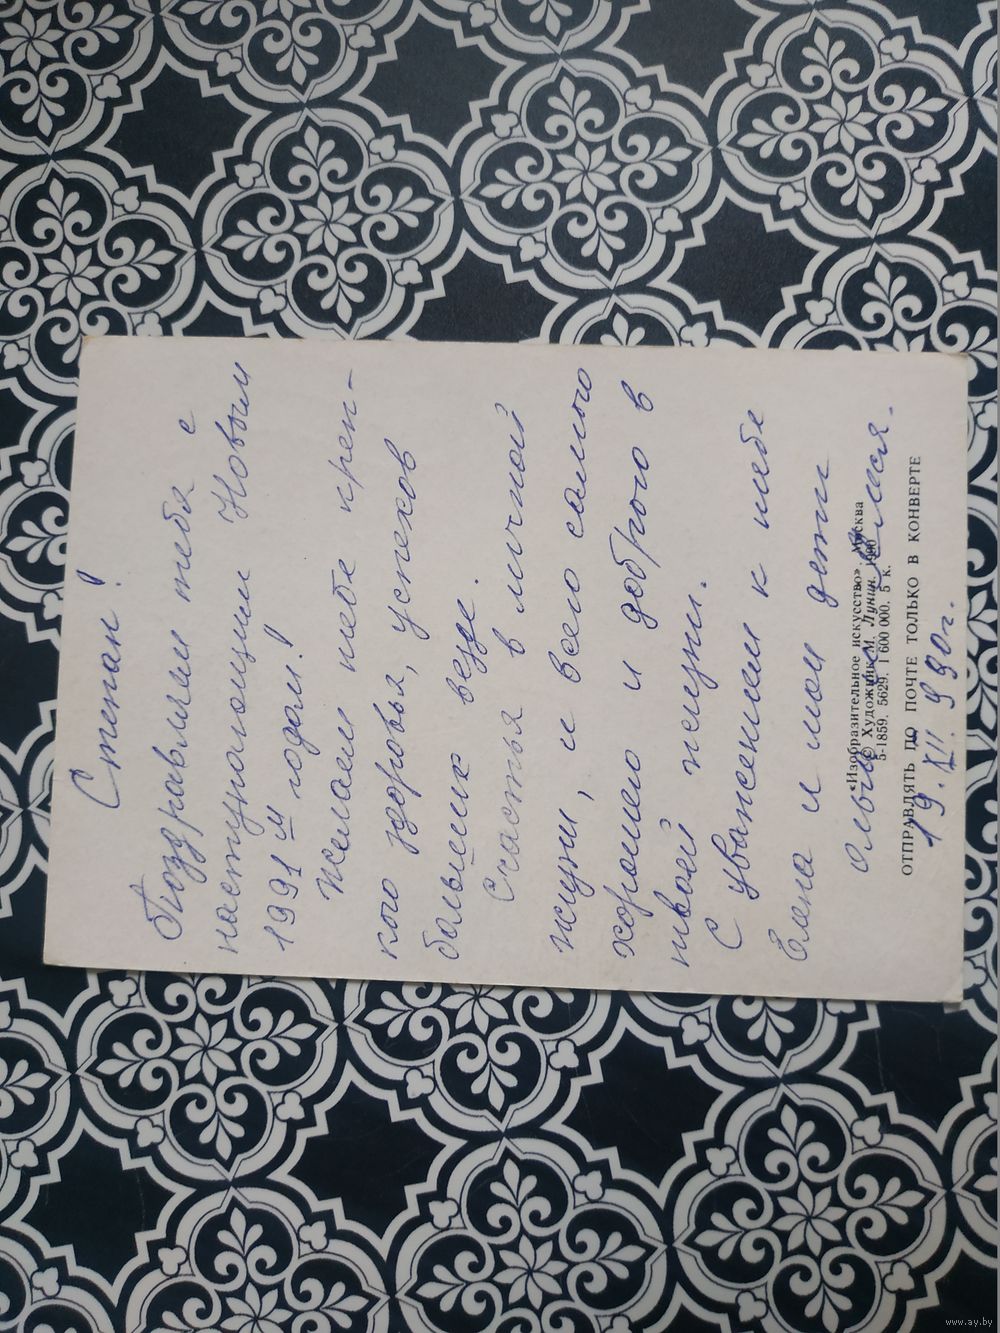 Степан!
Поздравляем тебя с
наступающим Новым
1991 м годом!
Желаем тебе креп-
кого здоровья, успехов
больших везде.
Счастья в личной
жизни, и всего самого
хорошего и доброго в
твоей жизни.
С уважением к тебе
Елена и мои дети
Ольга и Леся.
«Изобразительное искусство». Москва
© Художник М. Лунин. 1990
5-1859. 5629. 1 600 000. 5 к.
ОТПРАВЛЯТЬ ПО ПОЧТЕ ТОЛЬКО В КОНВЕРТЕ
19. XII. 990г.
www.ay.by